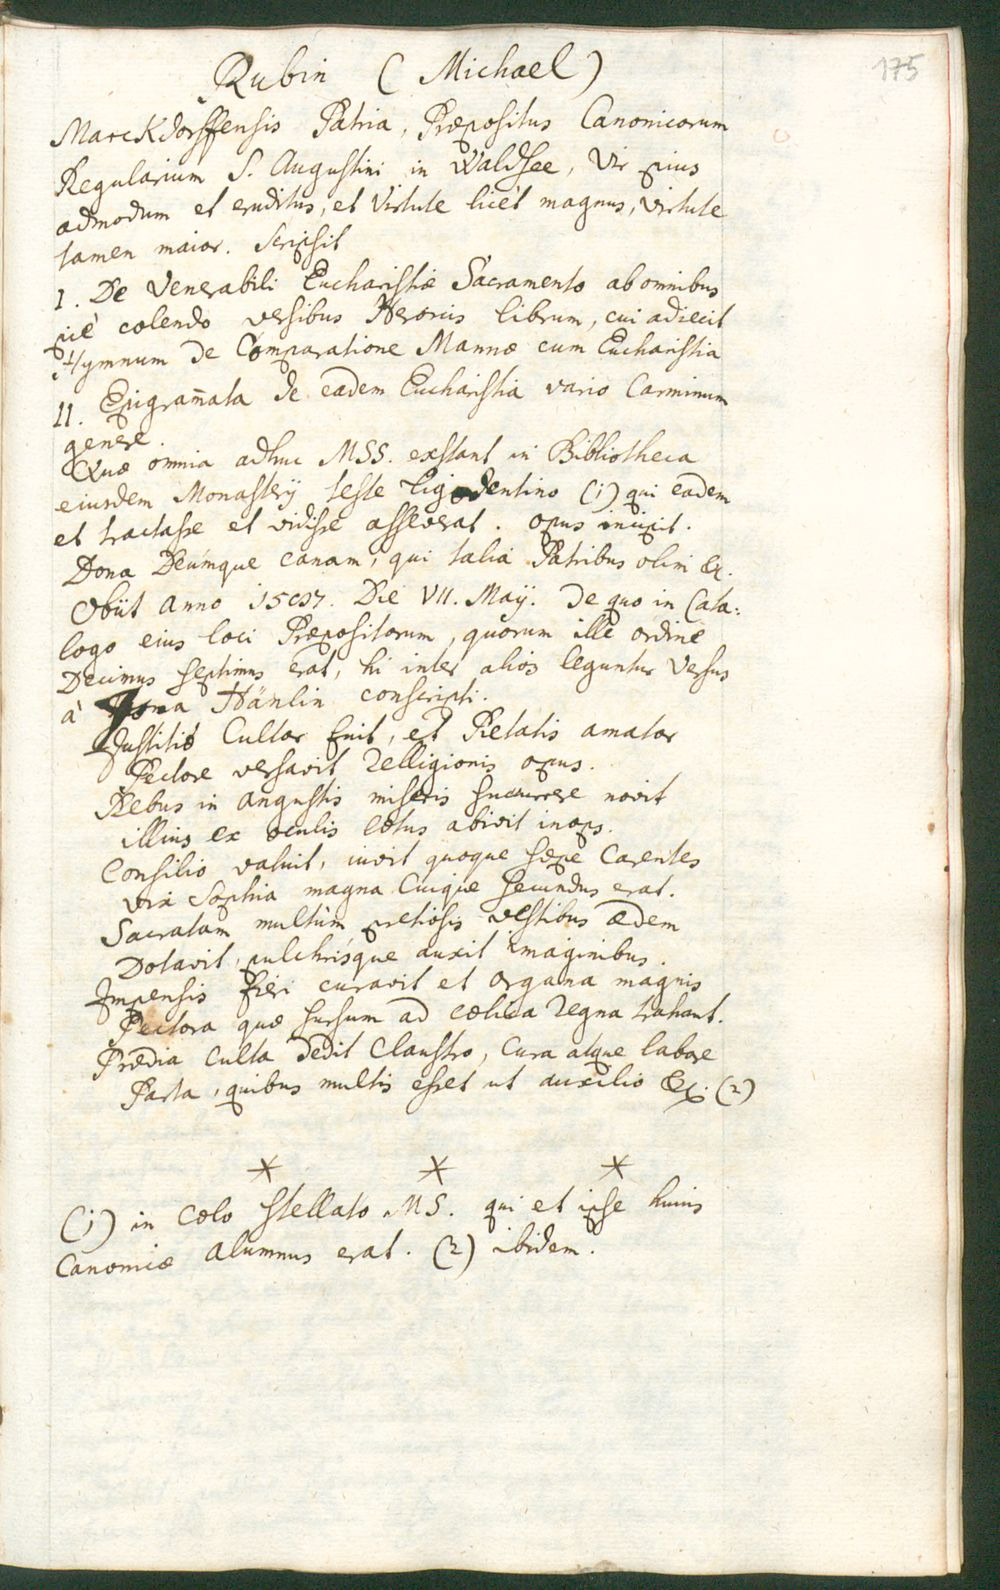 175
Rubin ( Michael )
Marckdorffensis Patria, Præpositus Canonicorum
Regularium S. Augustini in Waldsee, Vir pius
admodum et eruditus, et Virtute licèt magnus, virtute
tamen maior. Scripsit
I. De Venerabili Eucharistiæ Sacramento ab omnibus
piè colendo versibus Heroicis librum, cui adiecit
Hymnum de Comparatione Mannæ cum Eucharistia
II. Epigram̄ata de eadem Eucharistia vario Carminum
genere.
Quæ omnia adhuc MSS. exstant in Bibliotheca
eiusdem Monasterij teste Ligidentino (1) qui eadem
et tractasse et vidisse asseverat. opus incipit.
Dona Deúmque canam, qui talia Patribus olim &c.
Obijt Anno 1507. Die VII. Maij. de quo in Cata:
logo eius loci Præpositorum, quorum ille ordine
Decimus septimus erat, hi inter alios leguntur Versus
à Jona Hänlin conscripti.
Justitiæ Cultor fuit, et Pietatis amator
Pectore versavit relligionis opus.
Rebus in angustis miseris succurrere novit
illius ex oculis lætus abivit inops.
Consilio valuit, iuvit quoque sæpe Carentes
vix Sophia magna Cuique secundus erat.
Sacratam multùm pretiosis vestibus ædem
Dotavit, pulchrisque auxit imaginibus.
Impensis fieri curavit et organa magnis
Pectora quæ sursum ad cælica regna trahant.
Prædia Culta dedit Claustro, Cura atque labore
Parta, quibus multis esset ut auxilio &c. (2)
* * *
(1) in Cælo Stellato MS. qui et ipse huius
Canoniæ alumnus erat. (2) ibidem.